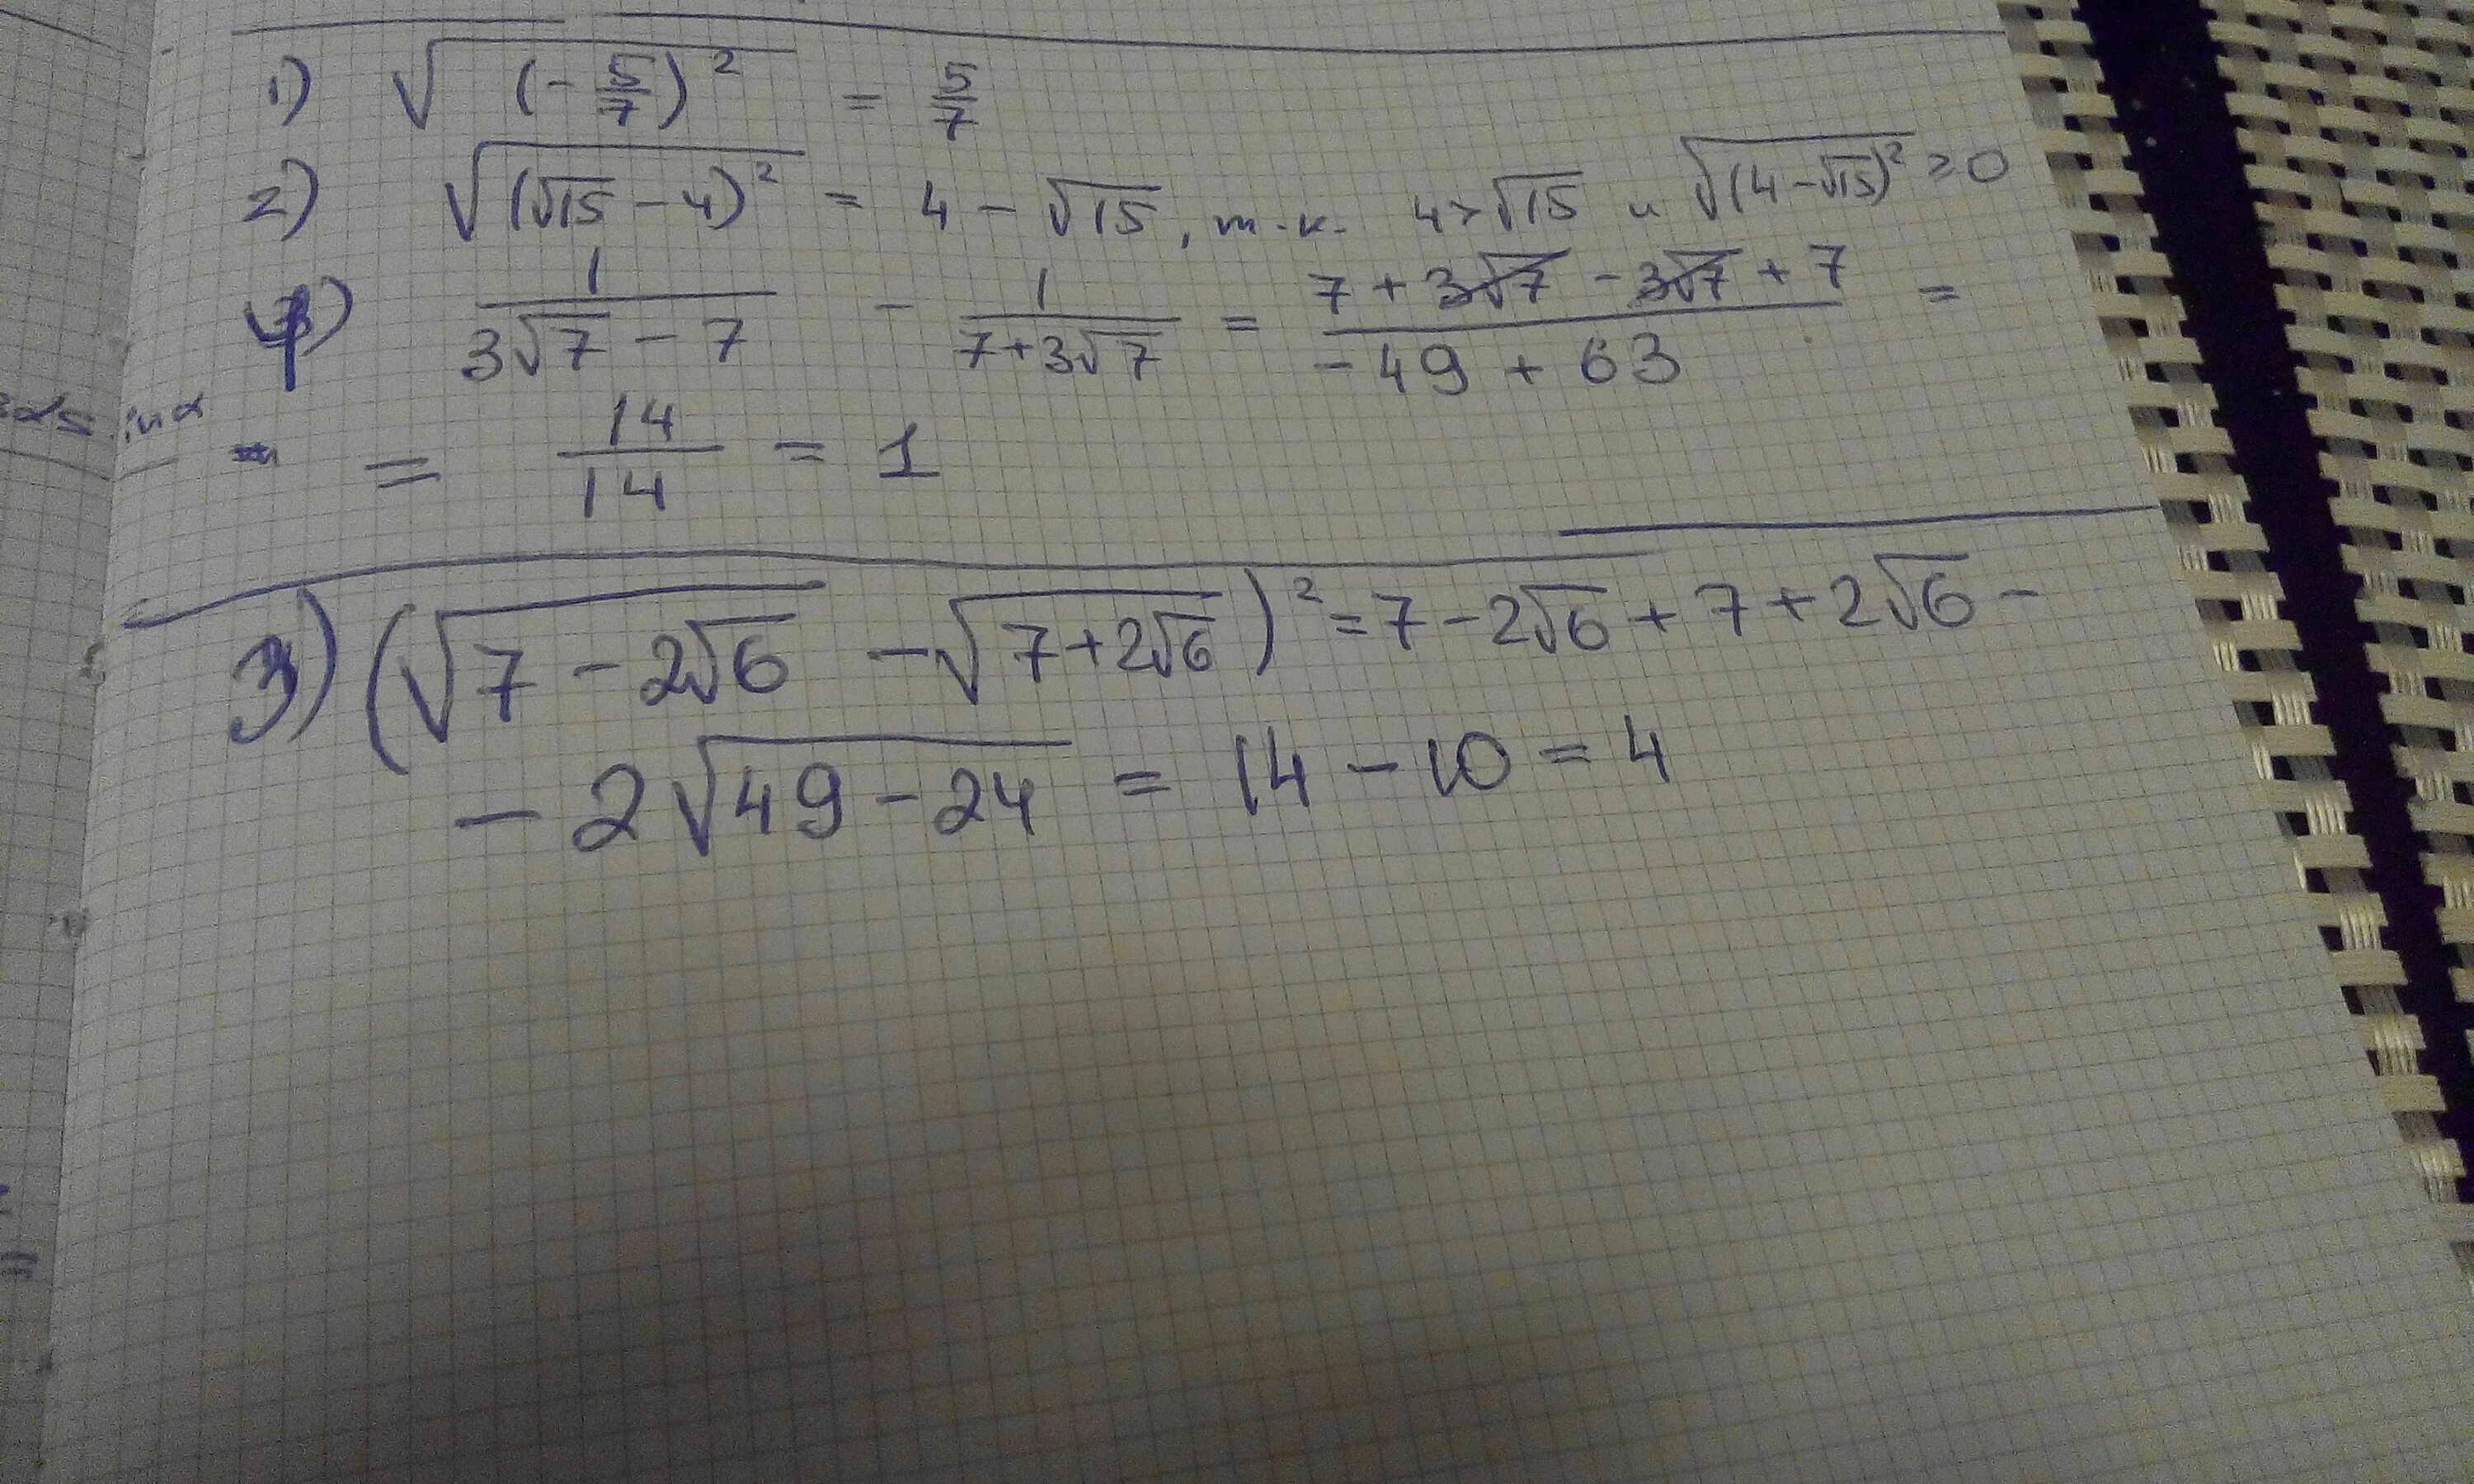 1) √((-5/7)²) = 5/7
2) √((√15 - 4)²) = 4 - √15, т.к. 4 > √15 и √((4 - √15)²) ≥ 0
4) 1/(3√7 - 7) - 1/(7 + 3√7) = (7 + 3√7 - 3√7 + 7)/(-49 + 63) =
= 14/14 = 1
3) (√(7 - 2√6) - √(7 + 2√6))² = 7 - 2√6 + 7 + 2√6 -
- 2√(49 - 24) = 14 - 10 = 4